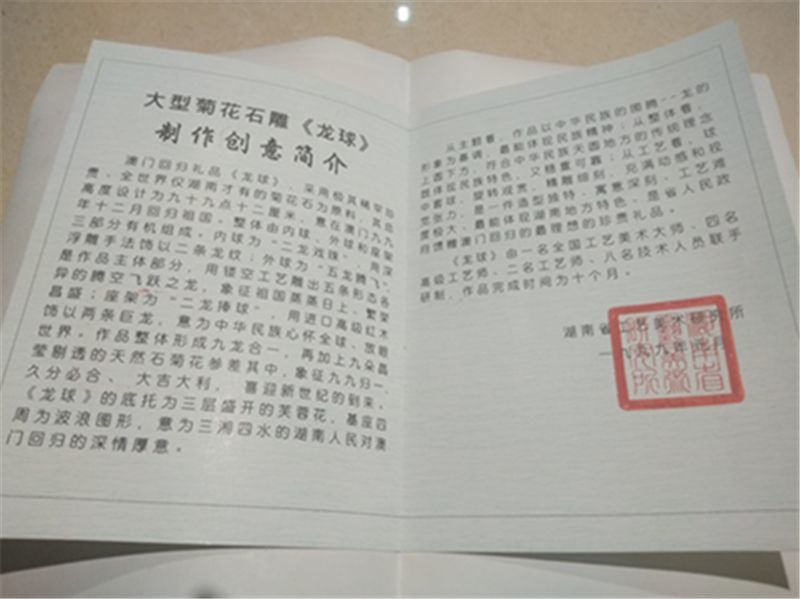 大型菊花石雕《龙球》
制作创意简介
澳门回归礼品《龙球》、采用极其稀罕珍
贵、全世界仅湖南才有的菊花石为原料，其总
高度设计为九十九点十二厘米，意在澳门九九
年十二月回归祖国。整体由内球、外球和座架
三部分有机组成。内球为“二龙戏珠”，用深
浮雕手法饰以二条龙纹；外球为“五龙腾飞”，
是作品主体部分，用镂空工艺雕出五条形态各
异的腾空飞跃之龙，象征祖国蒸蒸日上、繁荣
昌盛；座架为“二龙捧球”，用进口高级红木
饰以两条巨龙，意为中华民族心怀全球、放眼
世界。作品整体形成九龙合一，再加上九朵晶
莹剔透的天然石菊花参差其中，象征九九归一，
久分必合、大吉大利，喜迎新世纪的到来。
《龙球》的底托为三层盛开的芙蓉花，基座四
周为波浪图形，意为三湘四水的湖南人民对澳
门回归的深情厚意。
从主题看，作品以中华民族的图腾--龙的
形象为基调，最能体现民族精神；从整体看，
上圆下方，符合中华民族天圆地方的传统理念
既体现民族特色，又稳重可靠；从工艺看，球
中套球，旋转观赏，精雕细刻，充满动感和视
觉张力，是一件造型独特、寓意深刻、工艺难
度极大、最能体现湖南地方特色、是省人民政
府馈赠澳门回归的最理想的珍贵礼品。
《龙球》由一名全国工艺美术大师、四名
高级工艺师、二名工艺师、八名技术人员联手
研制，作品完成时间为十个月。
湖南省工艺美术研究所
一九九九年 月